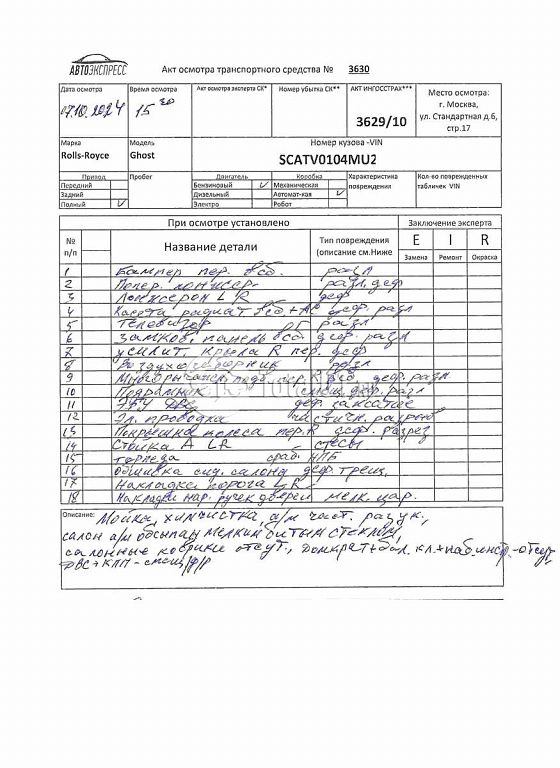 АВТОЭКСПРЕСС
Акт осмотра транспортного средства № 3630
Дата осмотра Время осмотра Акт осмотра эксперта СК* Номер убытка СК** АКТ ИНГОССТРАХ*** Место осмотра:
07.10.2024 15 30 3629/10 г. Москва,
ул. Стандартная д.6,
стр.17
Марка Модель Номер кузова -VIN
Rolls-Royce Ghost SCATV0104MU2
Привод Пробег Двигатель Коробка Характеристика повреждения Кол-во поврежденных табличек VIN
Передний Бензиновый ✓ Механическая
Задний Дизельный Автомат-кая ✓
Полный ✓ Электро Робот
При осмотре установлено Заключение эксперта
№ п/п Название детали Тип повреждения (описание см.Ниже E I R
Замена Ремонт Окраска
1 Бампер пер. в сб. разл
2 Попер. лонжер. разл. деф
3 Лонжерон L R деф
4 Кассета радиат в сб + АС деф. разл
5 Телевизор разл
6 Замков. панель в сб. деф. разл
7 усилит. крыла R пер. деф
8 Воздухозаборник разл
9 Многорычажн. подв. пер. R в сб деф. разл
10 Подрамник смещ. деф. разл
11 деф.
12 Эл. проводка частичн.
13 Покрышка колеса пер. R деф. разрез
14 Стойка A LR
15 торпеда сраб. НПБ
16 Обшивка сид. салона деф. трещ.
17 Накладки порога LR
18 Накладки нар. ручек дверей мелк. цар.
Описание: Мойка, химчистка, а/м част. разук.,
салон а/м обсыпан мелким битым стеклом,
салонные коврики отсут., домкрат + бал. кл. + наб. инстр. - отсут
ДВС + КПП - смещ/др